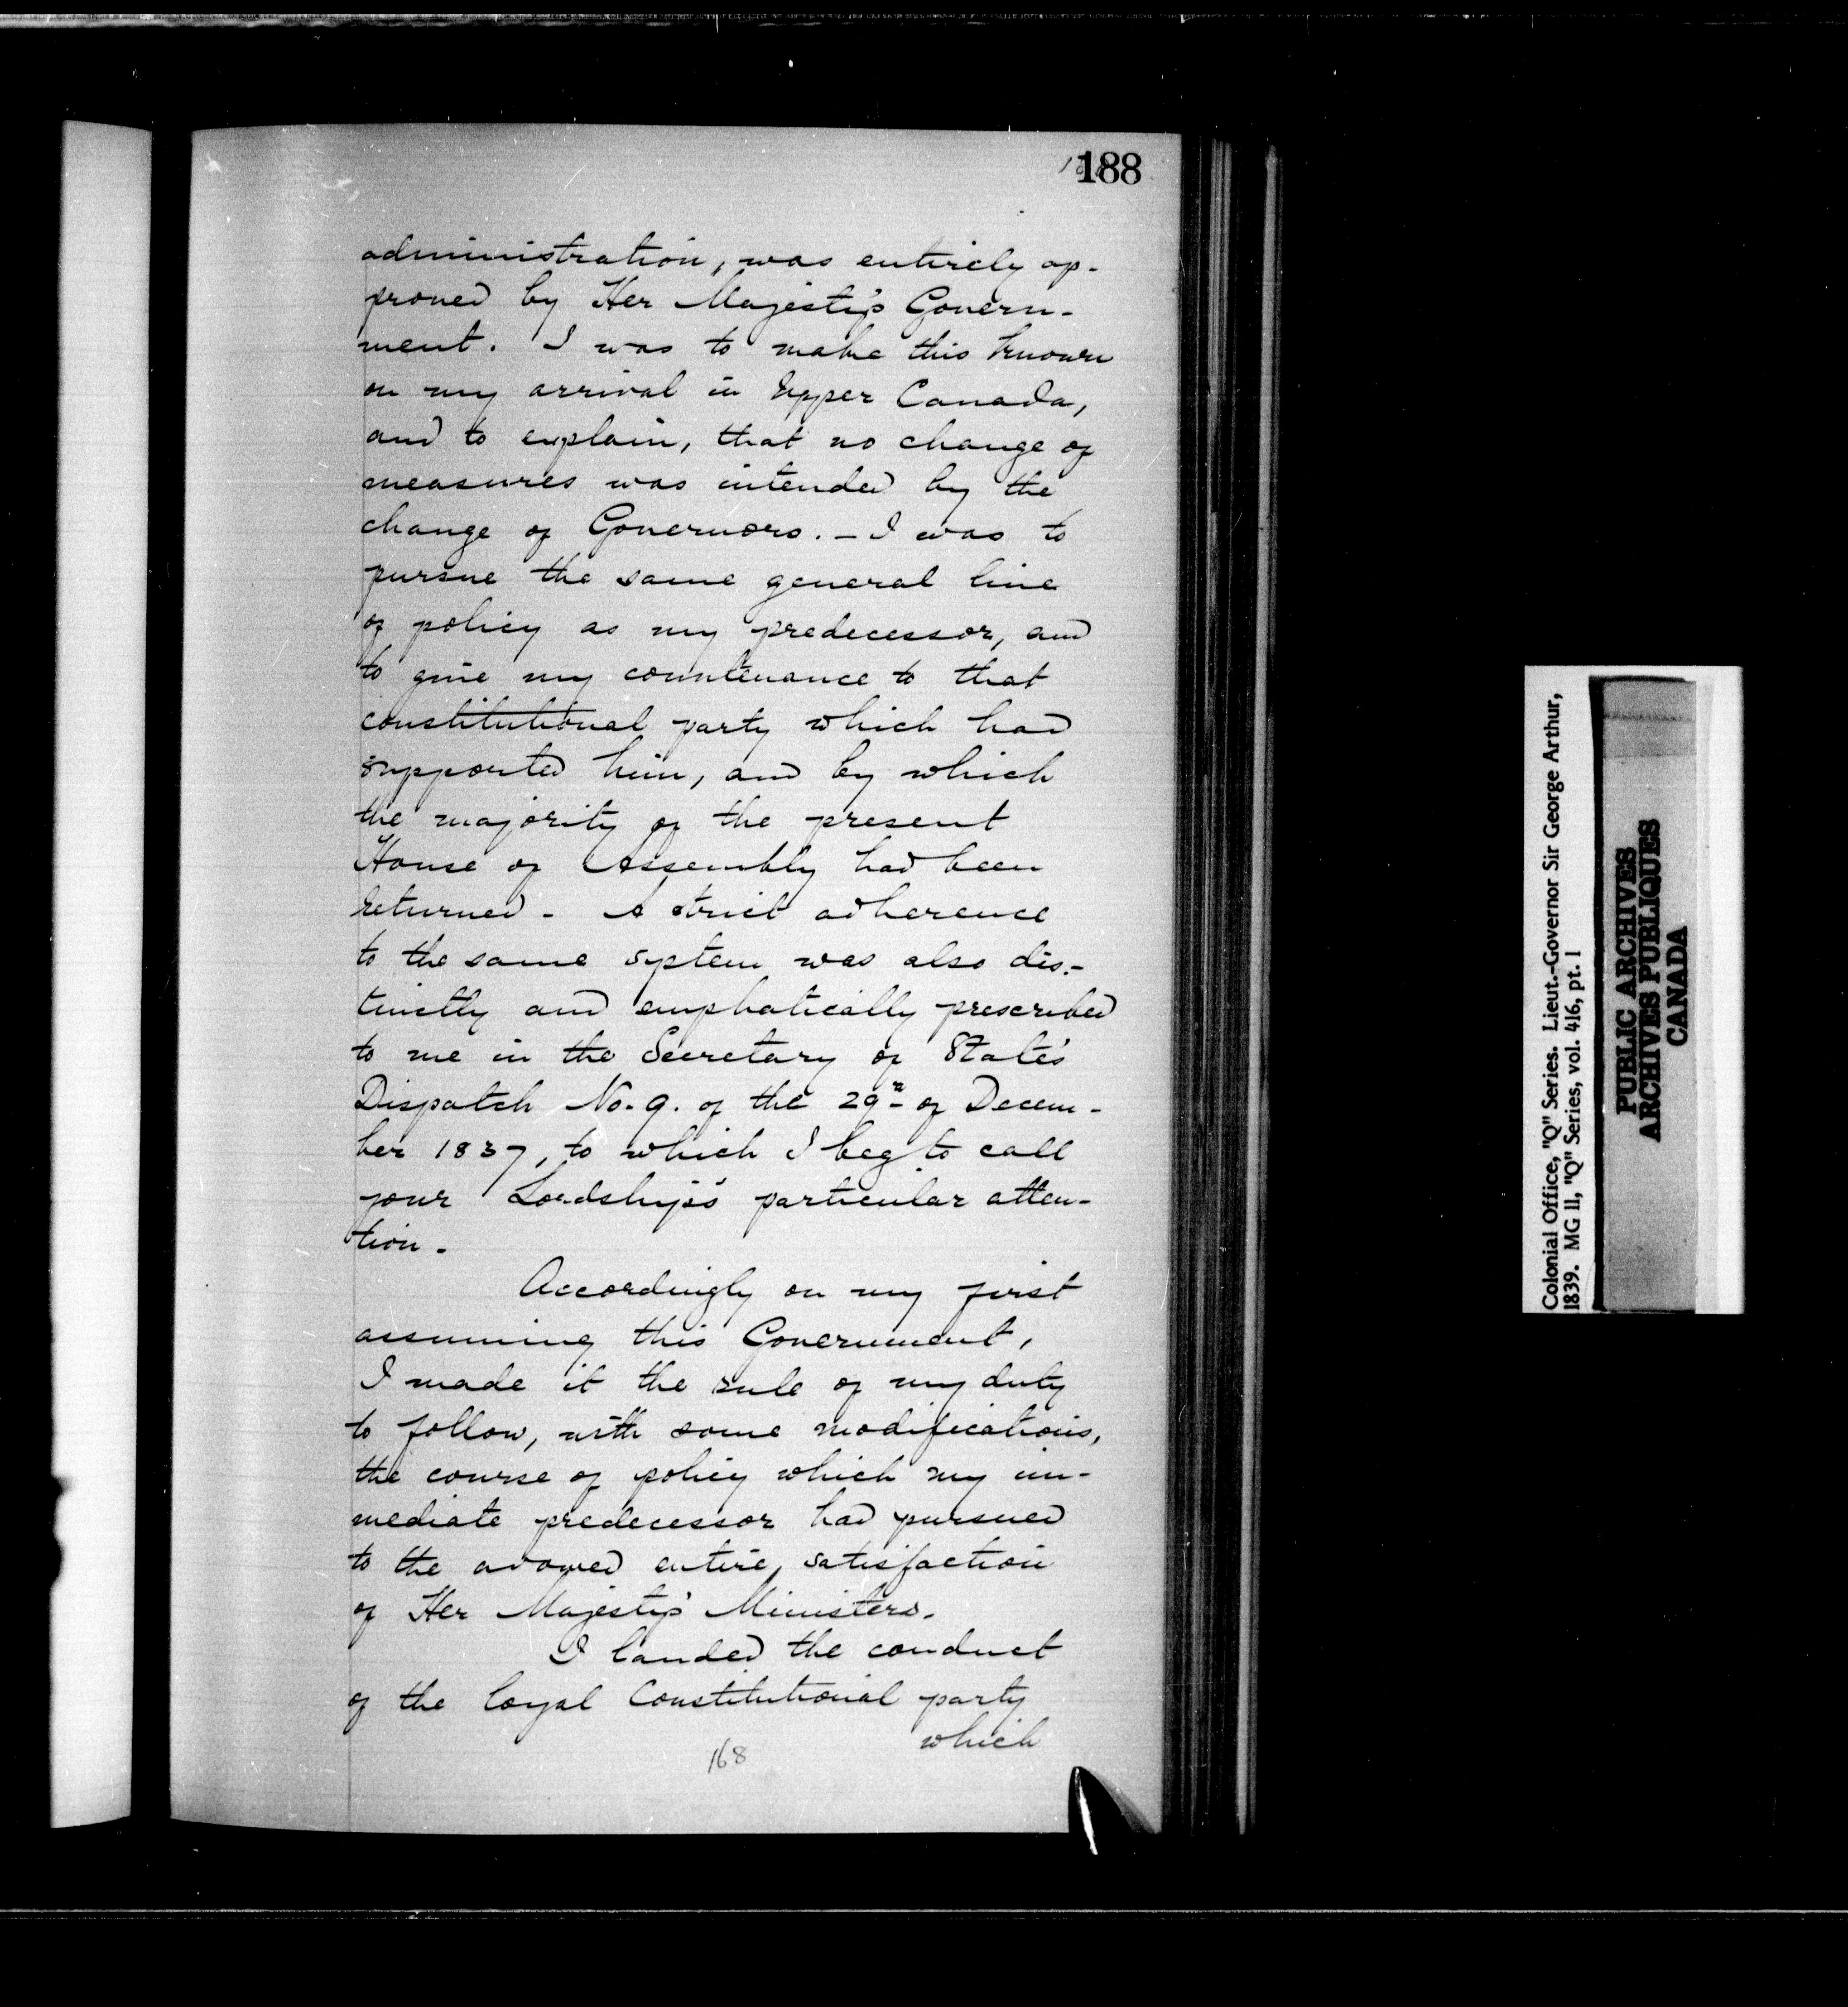 188
administration, was entirely ap-
proved by Her Majesty's Govern-
ment. I was to make this known
on my arrival in Upper Canada,
and to explain, that no change of
measures was intended by the
change of Governors. - I was to
pursue the same general line
of policy as my predecessor, and
to give my countenance to that
constitutional party which had
supported him, and by which
the majority of the present
House of Assembly had been
returned - A strict adherence
to the same system was also dis-
tinctly and emphatically prescribed
to me in the Secretary of State's
Dispatch No. 9. of the 29th of Decem-
ber 1837, to which I beg to call
your Lordship's particular atten-
tion -
Accordingly on my first
assuming this Government,
I made it the rule of my duty
to follow, with some modifications,
the course of policy which my im-
mediate predecessor had pursued
to the avowed entire satisfaction
of Her Majesty's Ministers.
I lauded the conduct
of the loyal Constitutional party
which
168
Colonial Office, "Q" Series. Lieut.-Governor Sir George Arthur,
1839. MG 11, "Q" Series, vol. 416, pt. 1
PUBLIC ARCHIVES
ARCHIVES PUBLIQUES
CANADA